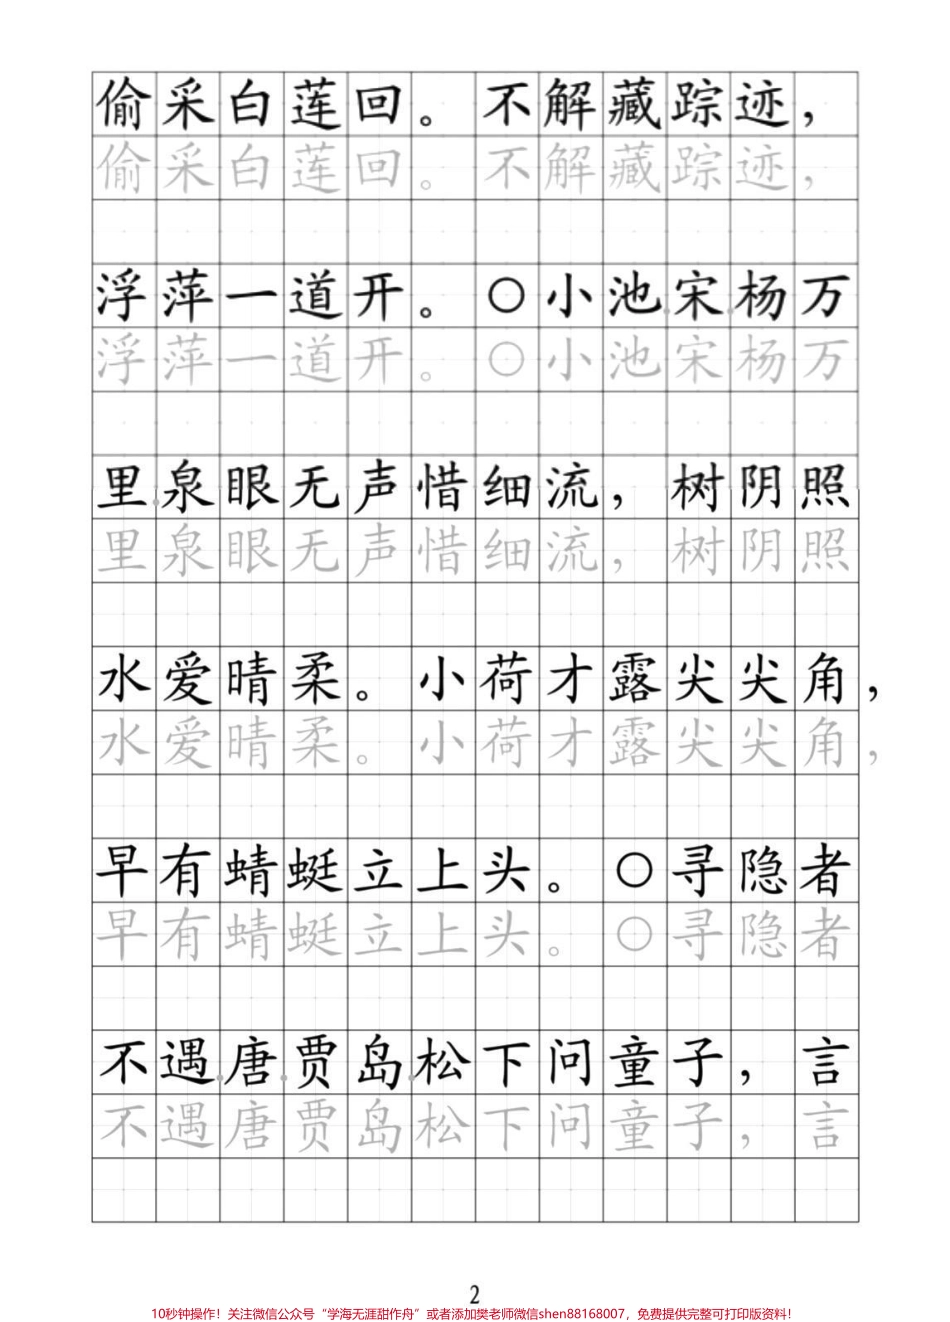 偷采白莲回。不解藏踪迹，
偷采白莲回。不解藏踪迹，
浮萍一道开。○小池宋杨万
浮萍一道开。○小池宋杨万
里泉眼无声惜细流，树阴照
里泉眼无声惜细流，树阴照
水爱晴柔。小荷才露尖尖角，
水爱晴柔。小荷才露尖尖角，
早有蜻蜓立上头。○寻隐者
早有蜻蜓立上头。○寻隐者
不遇唐贾岛松下问童子，言
不遇唐贾岛松下问童子，言
2
10秒钟操作！关注微信公众号“学海无涯甜作舟”或者添加樊老师微信shen88168007，免费提供完整可打印版资料！